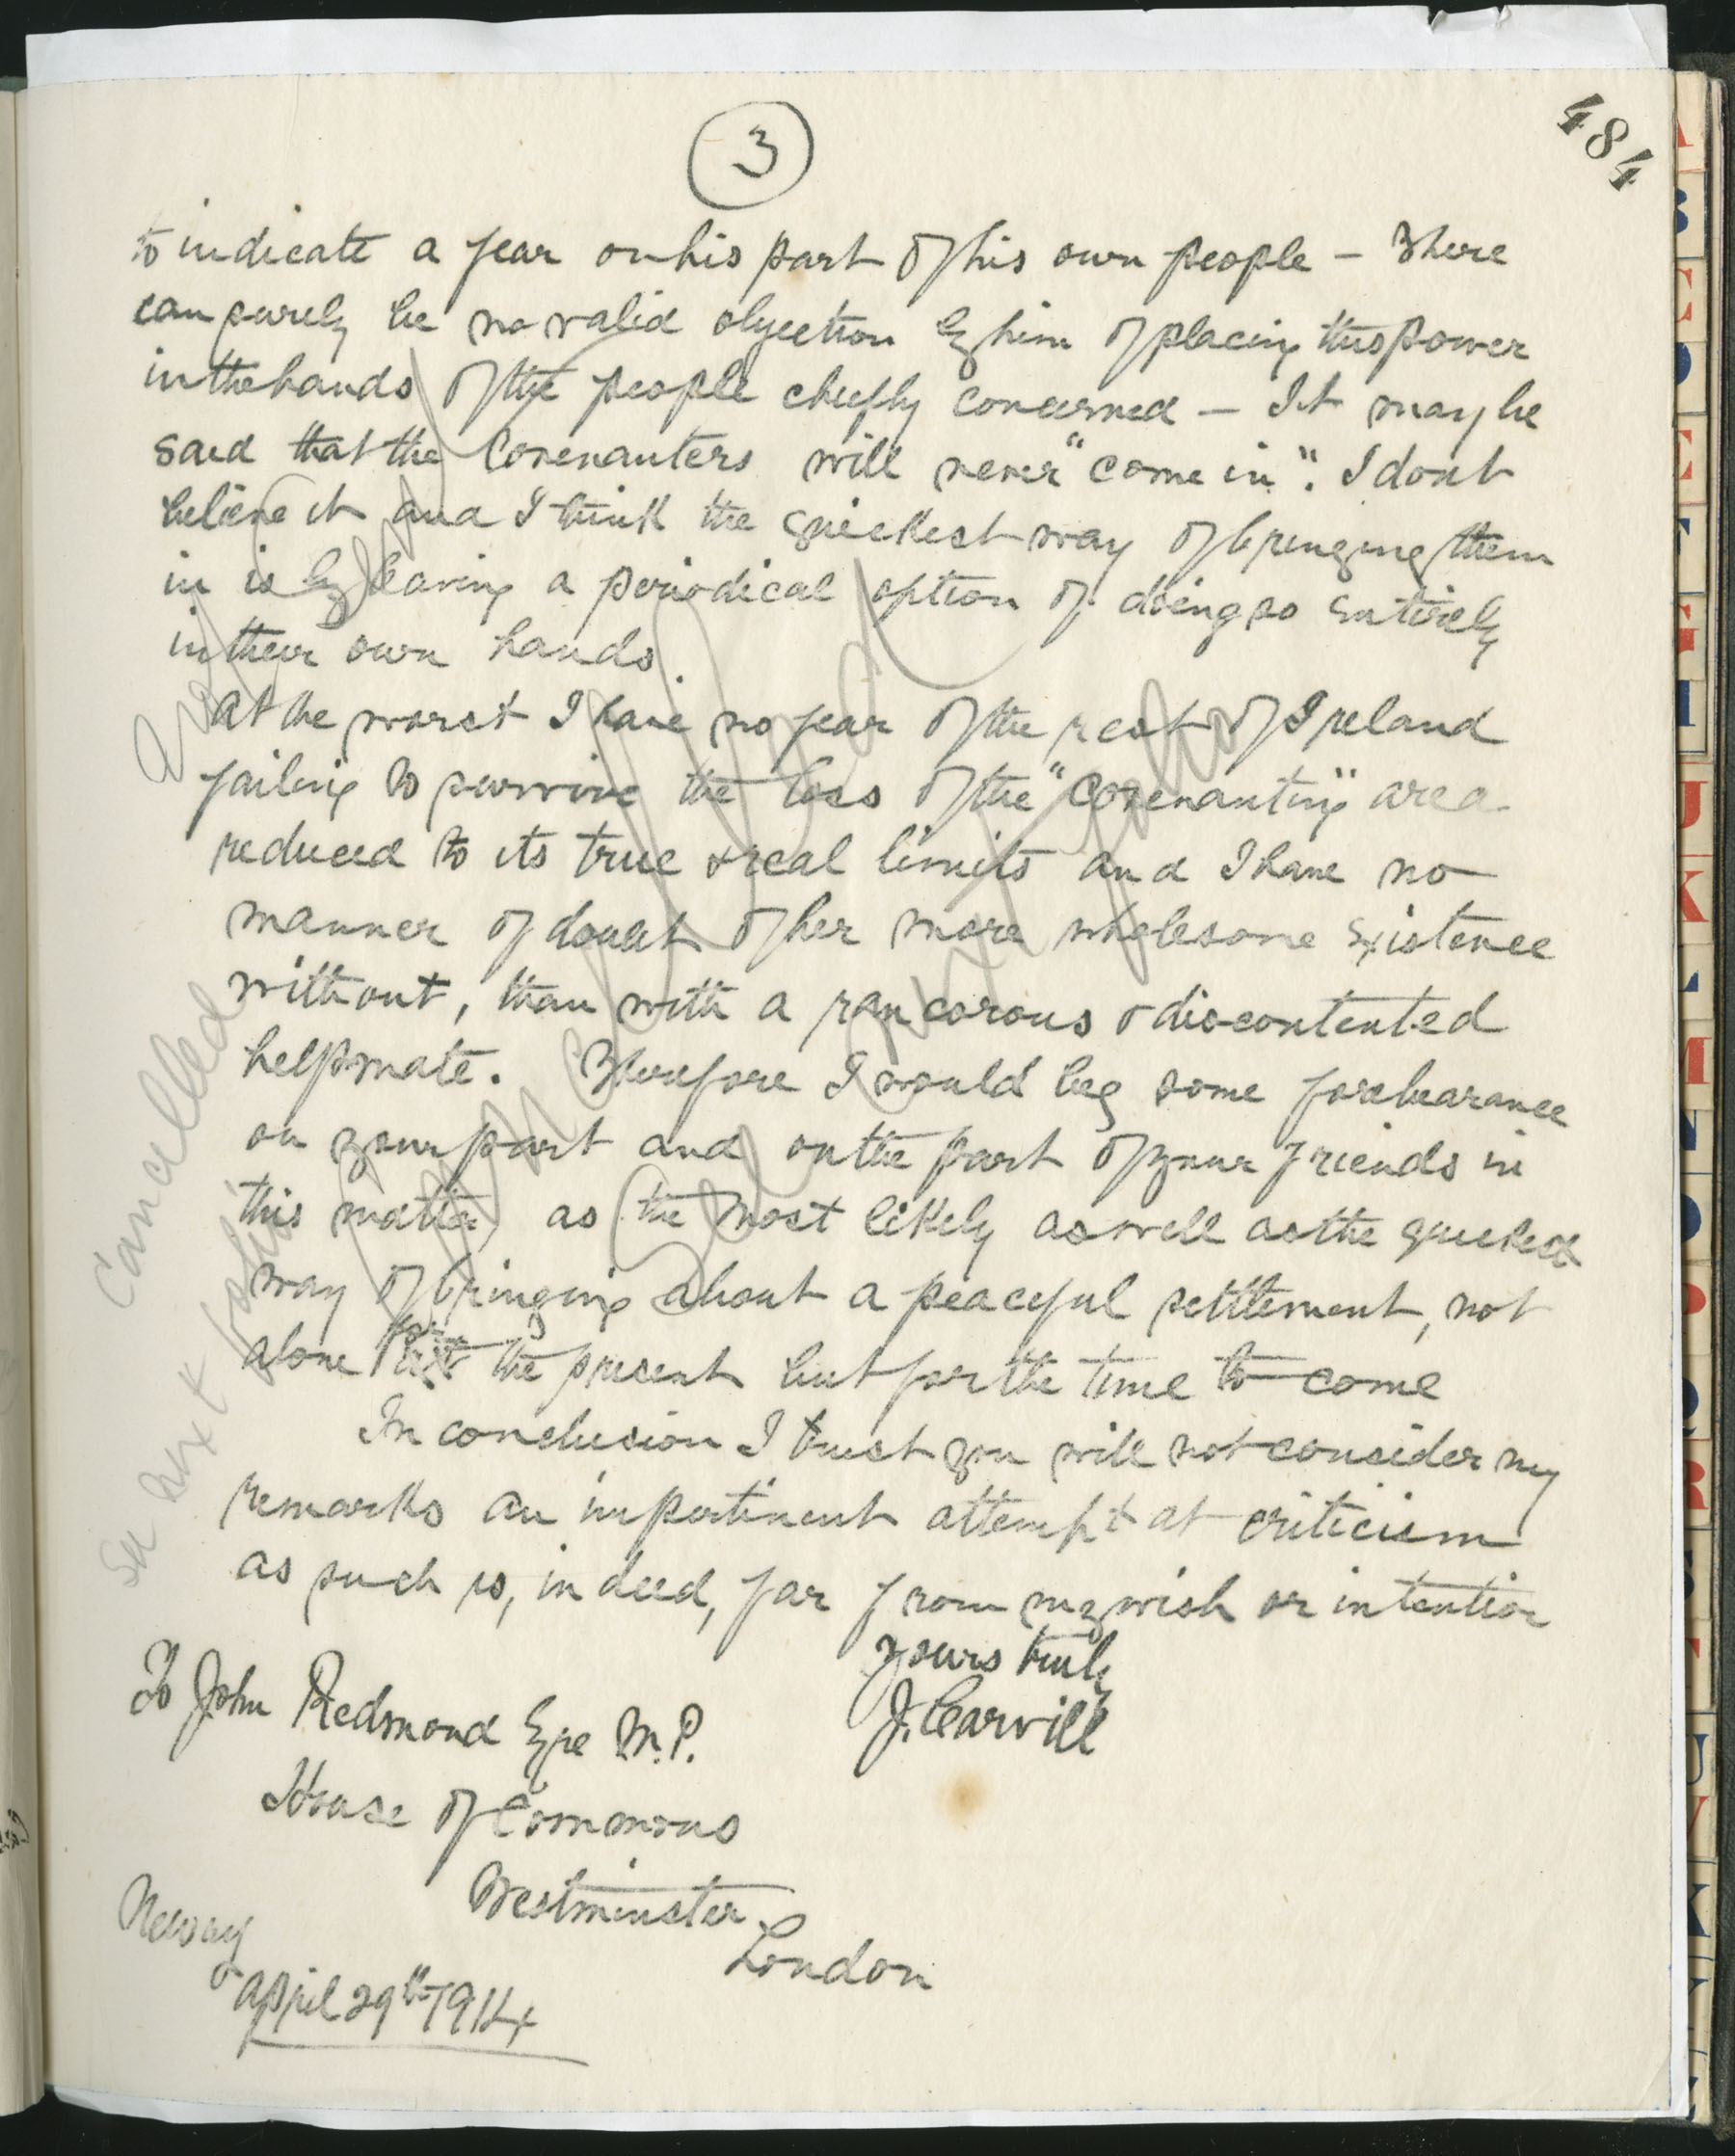 484
3
to indicate a fear on his part of his own people – There
can surely be no valid objection by him of placing this power
in the hands of the people chiefly concerned – It may be
said that the Covenanters will never "come in". I dont
believe it and I think the quickest way of bringing them
in is by leaving a periodical option of doing so entirely
in their own hands.
At the worst I have no fear of the rest of Ireland
failing to survive the loss of the "Covenanting" area
reduced to its true & real limits and I have no
manner of doubt of her more wholesome existence
without, than with a rancorous & discontented
helpmate. Therefore I would beg some forebearance
on your part and on the part of your friends in
this matter, as the most likely as well as the quickest
way of bringing about a peaceful settlement, not
alone for the present but for the time to come
In conclusion I trust you will not consider my
remarks an impertinent attempt at criticism
as such is, indeed, far from my wish or intention
Yours truly
J. Carvill
To John Redmond Esqre M.P.
House of Commons
Westminster
London
Newry
April 29th 1914
Cancelled
See next folio